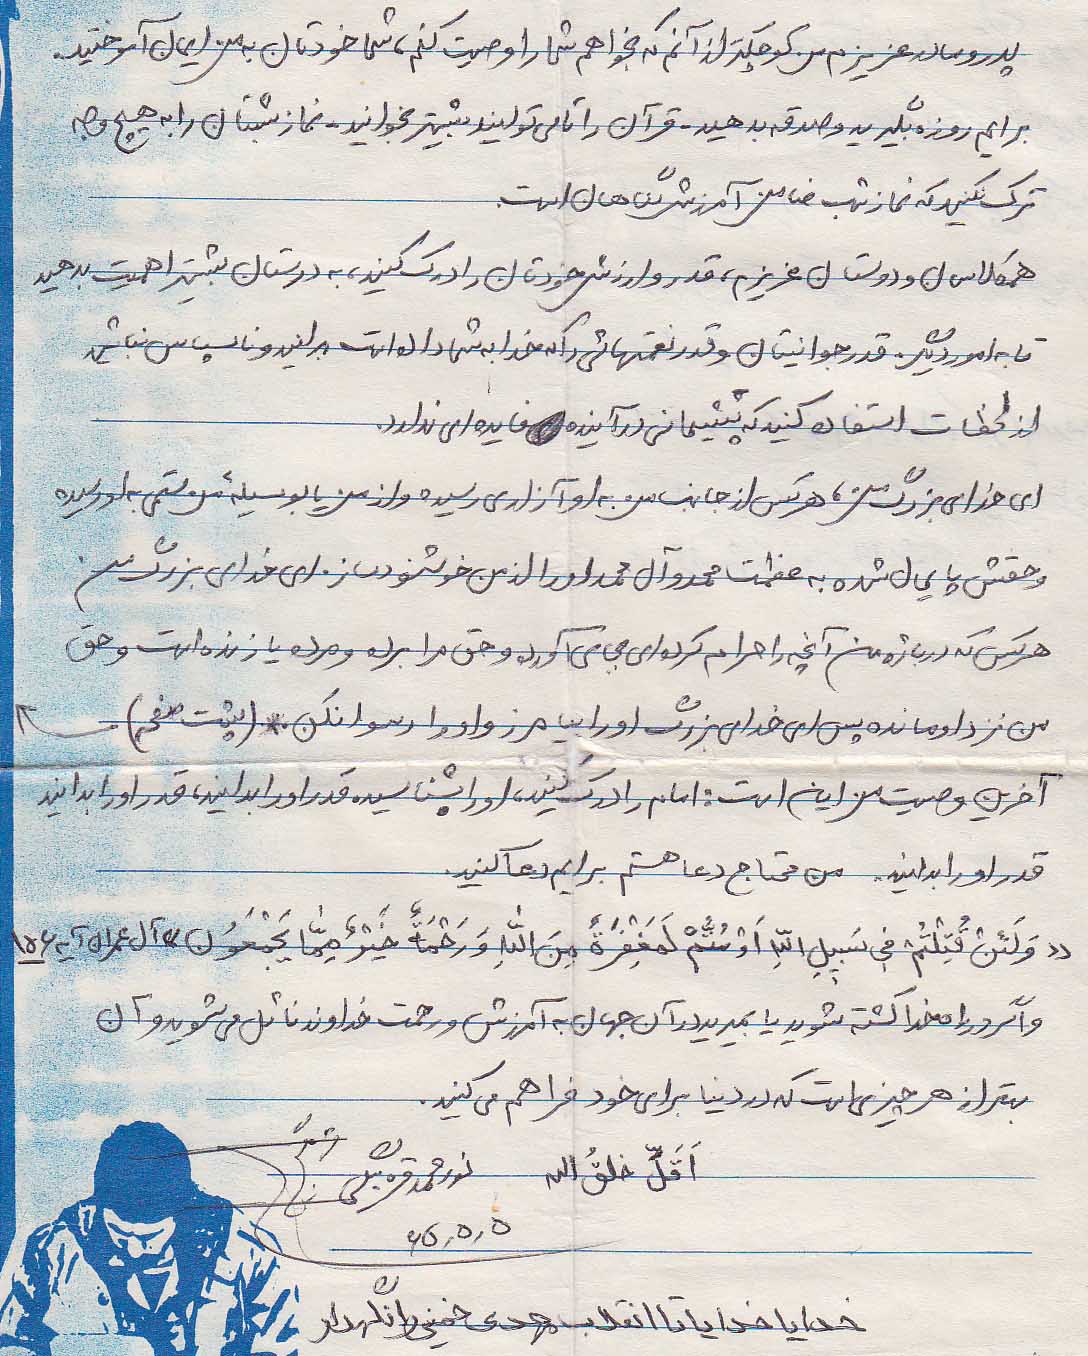 پدر و مادر عزیزم من کوچکتر از آنم که بخواهم شما را وصیت کنم، شما خودتان به من ایمان آموختید.
برایم روزه بگیرید و صدقه بدهید - قرآن را تا می توانید بیشتر بخوانید - نماز شبتان را به هیچ وجه
ترک نکنید که نماز شب ضامن آمرزش گناهان است.
همکلاسان و دوستان عزیزم، قدر و ارزش خودتان را درک کنید، به درستان بیشتر اهمیت بدهید
تا به امور دیگر. قدر جوانیتان و قدر نعمتهائی را که خدا به شما داده است بدانید و ناسپاس نباشید
از لحظات استفاده کنید که پشیمانی در آینده فایده ای ندارد.
ای خدای بزرگ من، هرکس از جانب من به او آزاری رسیده و از من یا بوسیلهٔ من ستمی به او رسیده
و حقش پایمال شده به عظمت محمد و آل محمد او را از من خوشنود ساز. ای خدای بزرگ من
هرکس که درباره من آنچه را حرام کرده ای بجای آورده و حق مرا برده و مرده یا زنده است و حق
من نزد او مانده پس ای خدای بزرگ او را بیامرز و او را رسوا نکن.* (پشت صفحه)
آخرین وصیت من این است: امام را درک کنید، او را بشناسید، قدر او را بدانید، قدر او را بدانید
قدر او را بدانید. من محتاج دعا هستم برایم دعا کنید.
«وَلَئِنْ قُتِلْتُمْ فِی سَبِیلِ اللّهِ اَوْ مُتُّمْ لَمَغْفِرَةٌ مِنَ اللّهِ وَ رَحْمَةٌ خَیْرٌ مِمّا یَجْمَعُونَ» آل عمران آیه ۱۵۶
و اگر در راه خدا کشته شوید یا بمیرید در آن جهان به آمرزش و رحمت خداوند نائل می شوید و آن
بهتر از هر چیزی است که در دنیا برای خود فراهم می کنید.
اَقَلُّ خلقُ الله نورمحمد قره بیگی
۶۵٫۵٫۵
خدایا خدایا تا انقلاب مهدی خمینی را نگهدار